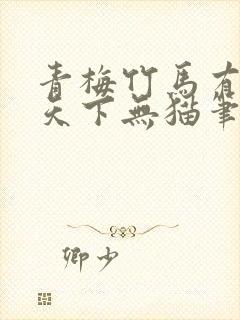 青梅竹馬有
天下無猫筆
卿少